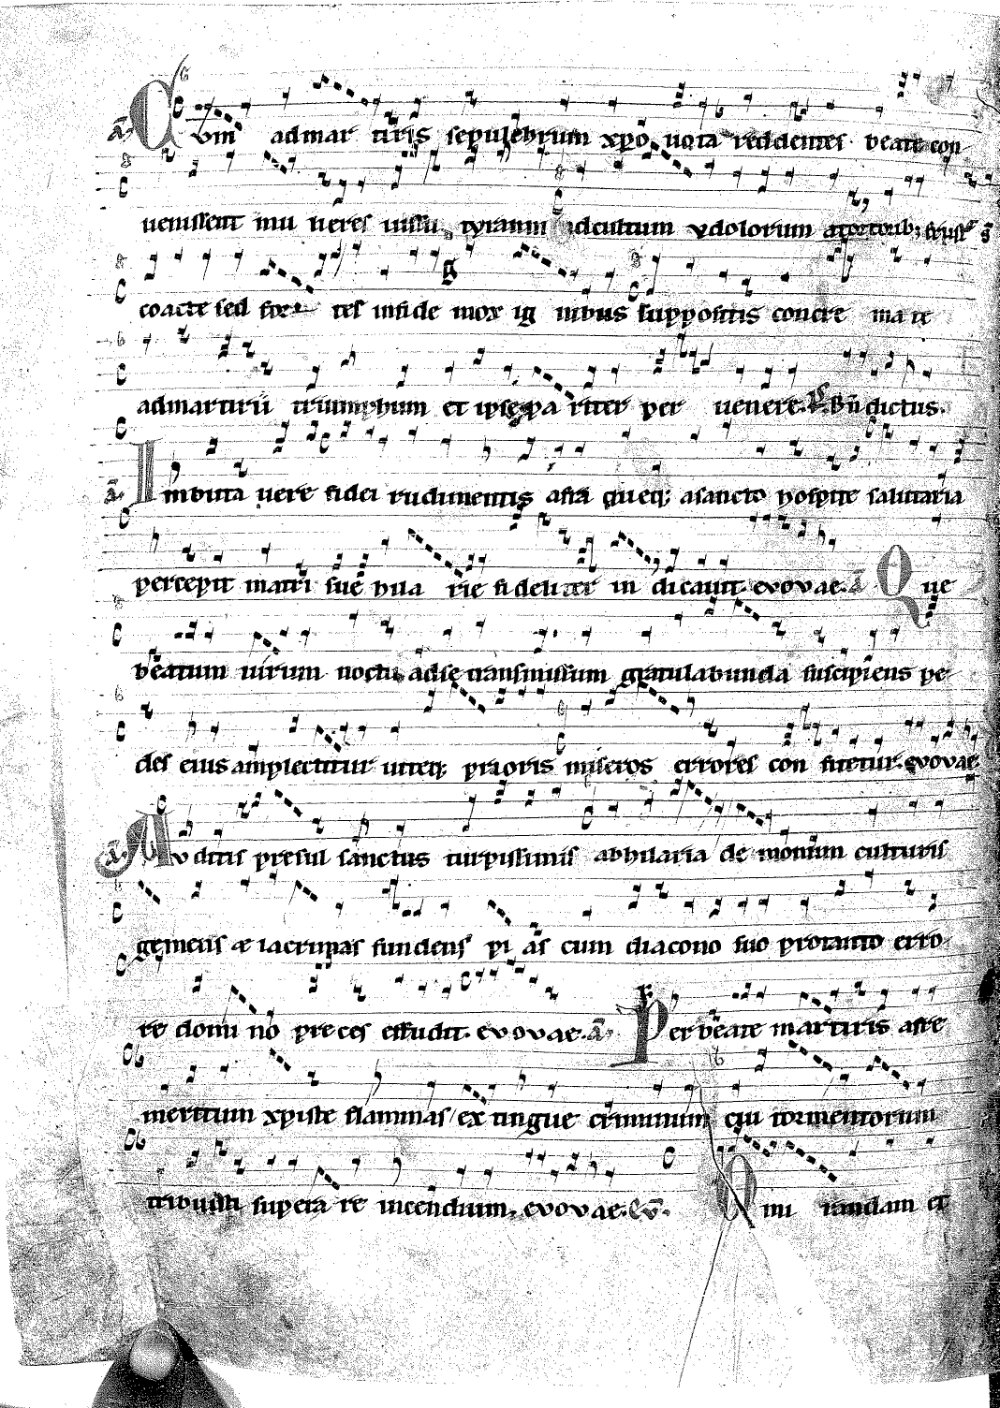 a Cum ad martiris sepulchrum xpo uota reddentes beate con
uenissent mu lieres iussu tyranni ad cultum ydolorum
coacte sed for tes in fide mox ig nibus suppositis concre ma te
ad martirii triumphum et ipse pa riter per uenere. Bndictus.
a Inbuta uere fidei rudimentis afra queq; a sancto hospite salutaria
percepit matri sue hila rie fideliter in dicauit. evovae. a Que
beatum uirum noctu ad se transmissum gratulabunda suscipiens pe
des eius amplectitur utteq; prioris miseros errores con fitetur. evovae
a Avditis presul sanctus turpissimis ab hilaria de monum culturis
gemens & lacrimas fundens pi as cum diacono suo pro tanto erro
re domi no preces effudit. evovae. a Per beate martiris afre
meritum xpiste flammas extingue criminum cui tormentorum
tribuisti supera re incendium. evovae. ev. Qui iandam et